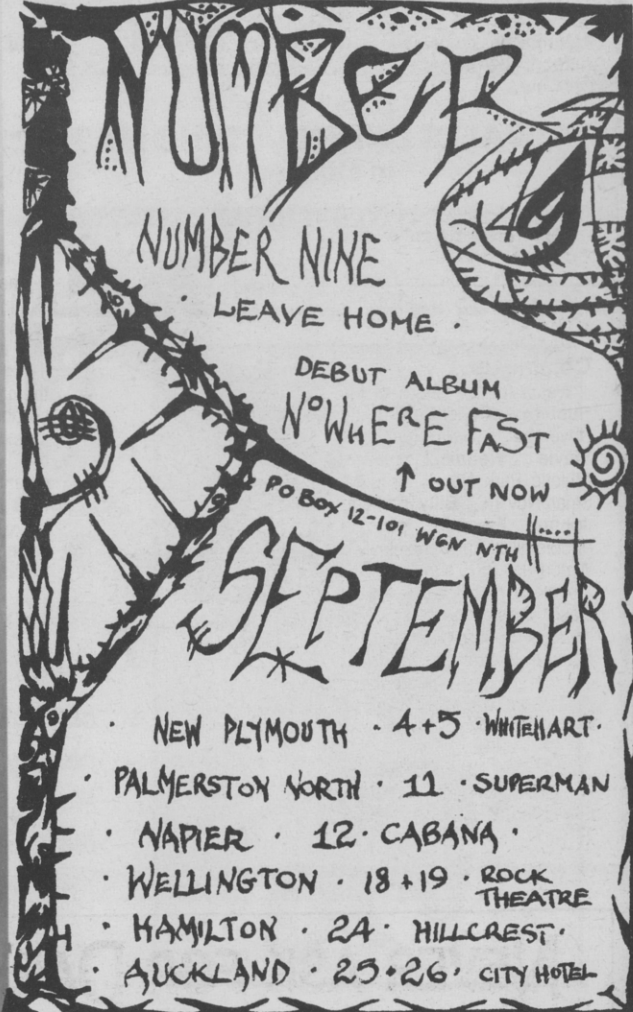 NUMBER
9
NUMBER NINE
· LEAVE HOME ·
DEBUT ALBUM
NOWHERE FAST
↑ OUT NOW
PO BOX 12-101 WGN NTH
SEPTEMBER
· NEW PLYMOUTH · 4+5 · WHITEHART ·
· PALMERSTON NORTH · 11 · SUPERMAN
· NAPIER · 12 · CABANA ·
· WELLINGTON · 18+19 · ROCK THEATRE
· HAMILTON · 24 · HILLCREST ·
· AUCKLAND · 25·26 · CITY HOTEL